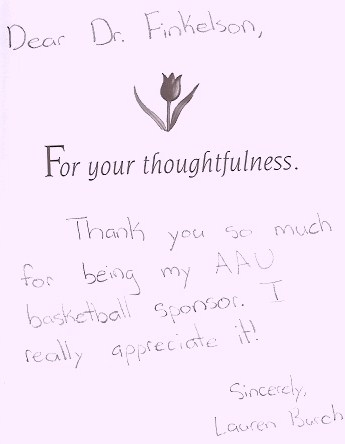 Dear Dr. Finkelson,
For your thoughtfulness.
Thank you so much
for being my AAU
basketball sponsor. I
really appreciate it!
Sincerely,
Lauren Burch